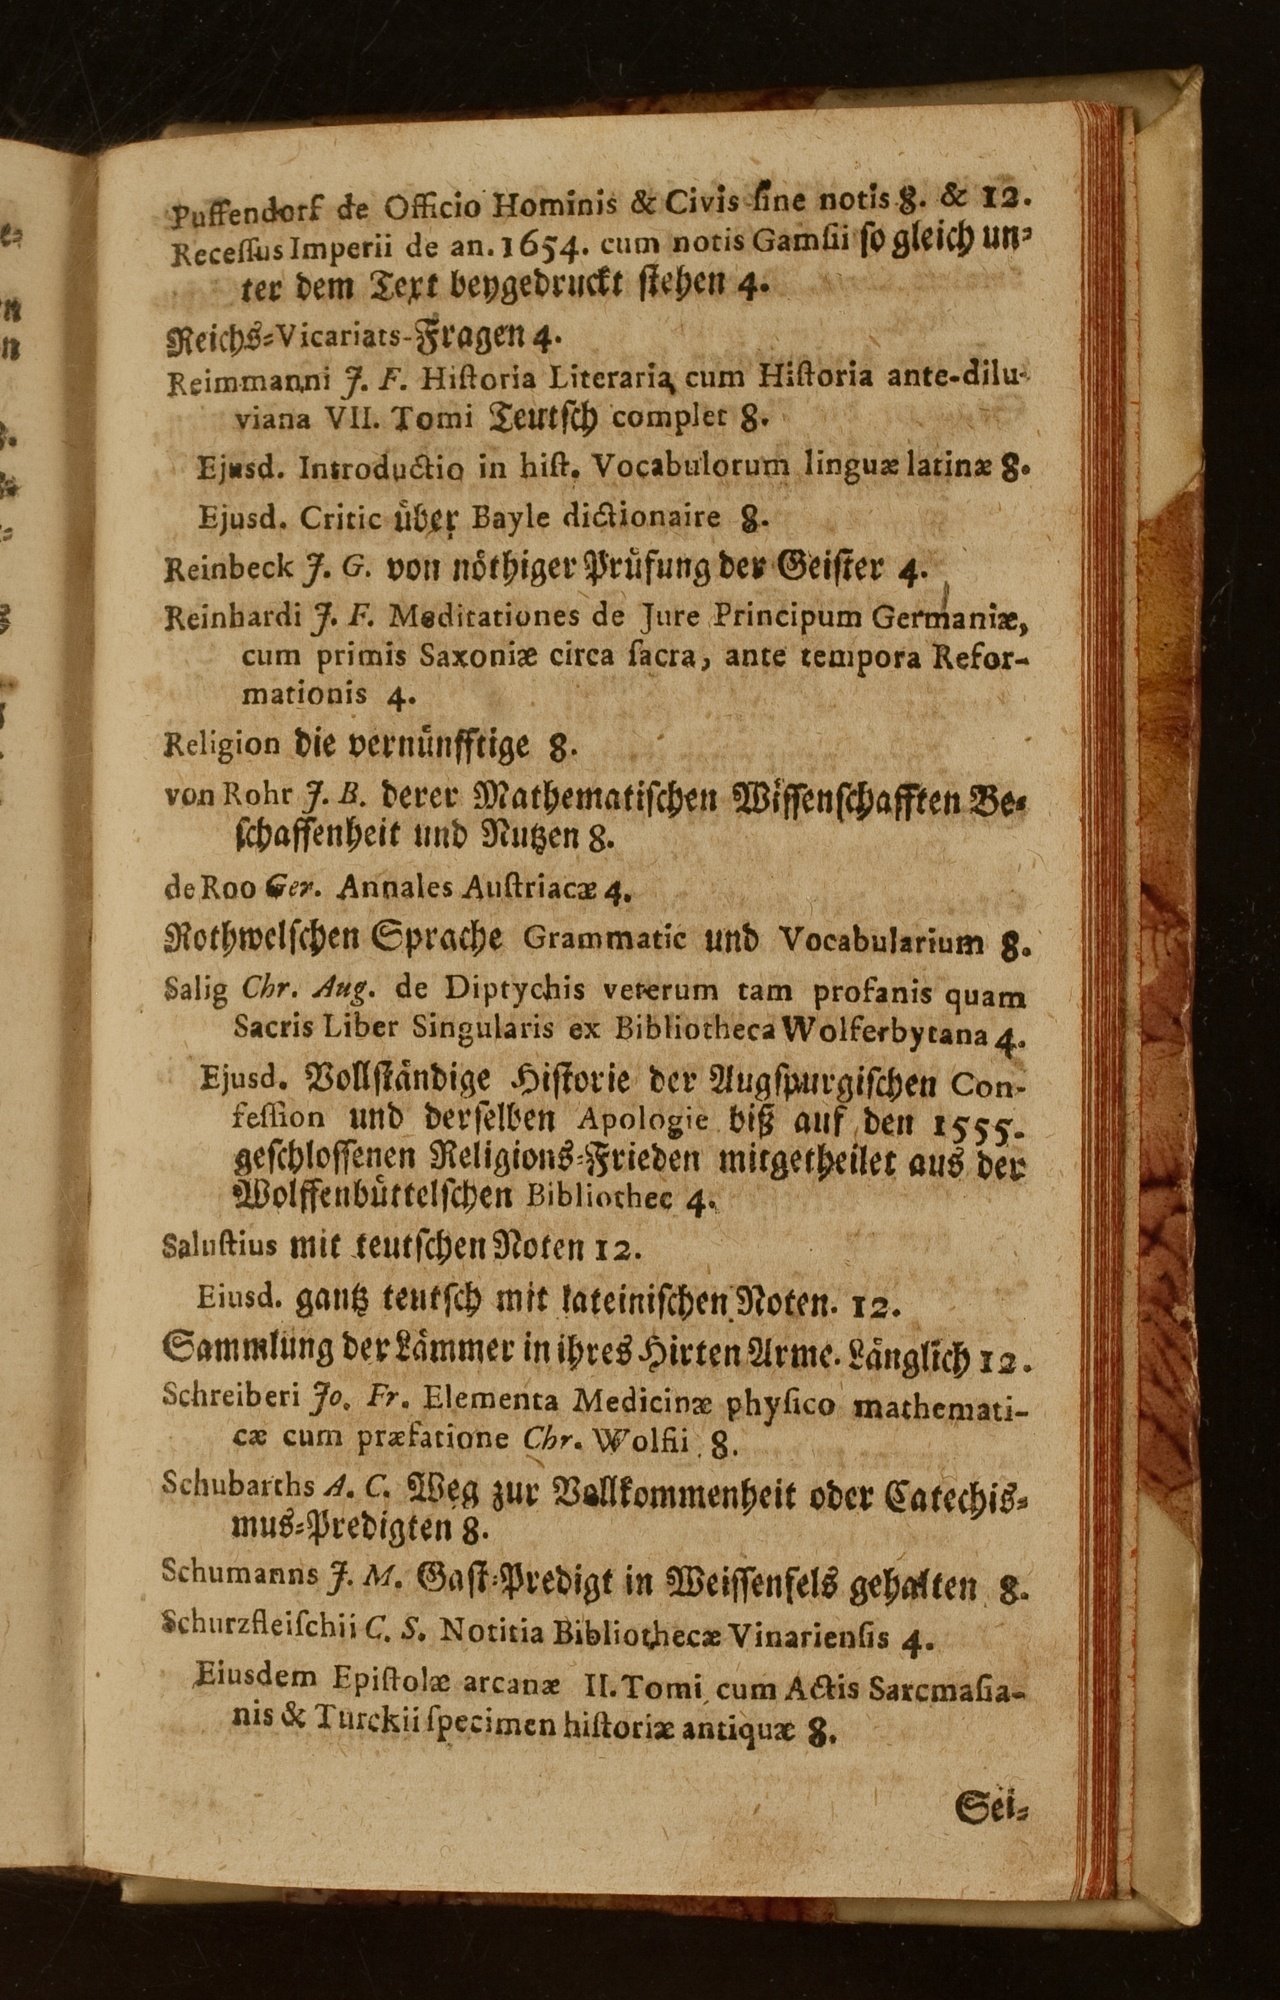 Puffendorf de Officio Hominis & Civis ſine notis 8. & 12.
Receſſus Imperii de an. 1654. cum notis Gamſii ſo gleich un⸗
ter dem Text beygedruckt ſtehen 4.
Reichs⸗Vicariats-Fragen 4.
Reimmanni J. F. Hiſtoria Literaria cum Hiſtoria ante-dilu-
viana VII. Tomi Teutſch complet 8.
Ejusd. Introductio in hiſt. Vocabulorum linguæ latinæ 8.
Ejusd. Critic über Bayle dictionaire 8.
Reinbeck J. G. von nöthiger Prüfung der Geiſter 4.
Reinhardi J. F. Meditationes de Jure Principum Germaniæ,
cum primis Saxoniæ circa ſacra, ante tempora Refor-
mationis 4.
Religion die vernünfftige 8.
von Rohr J. B. derer Mathematiſchen Wiſſenſchafften Be⸗
ſchaffenheit und Nutzen 8.
de Roo Ger. Annales Auſtriacæ 4.
Rothwelſchen Sprache Grammatic und Vocabularium 8.
Salig Chr. Aug. de Diptychis veterum tam profanis quam
Sacris Liber Singularis ex Bibliotheca Wolferbytana 4.
Ejusd. Vollſtändige Hiſtorie der Augſpurgiſchen Con-
feſſion und derſelben Apologie biß auf den 1555.
geſchloſſenen Religions⸗Frieden mitgetheilet aus der
Wolffenbüttelſchen Bibliothec 4.
Saluſtius mit teutſchen Noten 12.
Eiusd. gantz teutſch mit lateiniſchen Noten. 12.
Sammlung der Lämmer in ihres Hirten Arme. Länglich 12.
Schreiberi Jo. Fr. Elementa Medicinæ phyſico mathemati-
cæ cum præfatione Chr. Wolfii 8.
Schubarths A. C. Weg zur Vollkommenheit oder Catechis⸗
mus⸗Predigten 8.
Schumanns J. M. Gaſt⸗Predigt in Weiſſenfels gehalten 8.
Schurzfleiſchii C. S. Notitia Bibliothecæ Vinarienſis 4.
Eiusdem Epiſtolæ arcanæ II. Tomi cum Actis Sarcmaſia-
nis & Turckii ſpecimen hiſtoriæ antiquæ 8.
Sei⸗